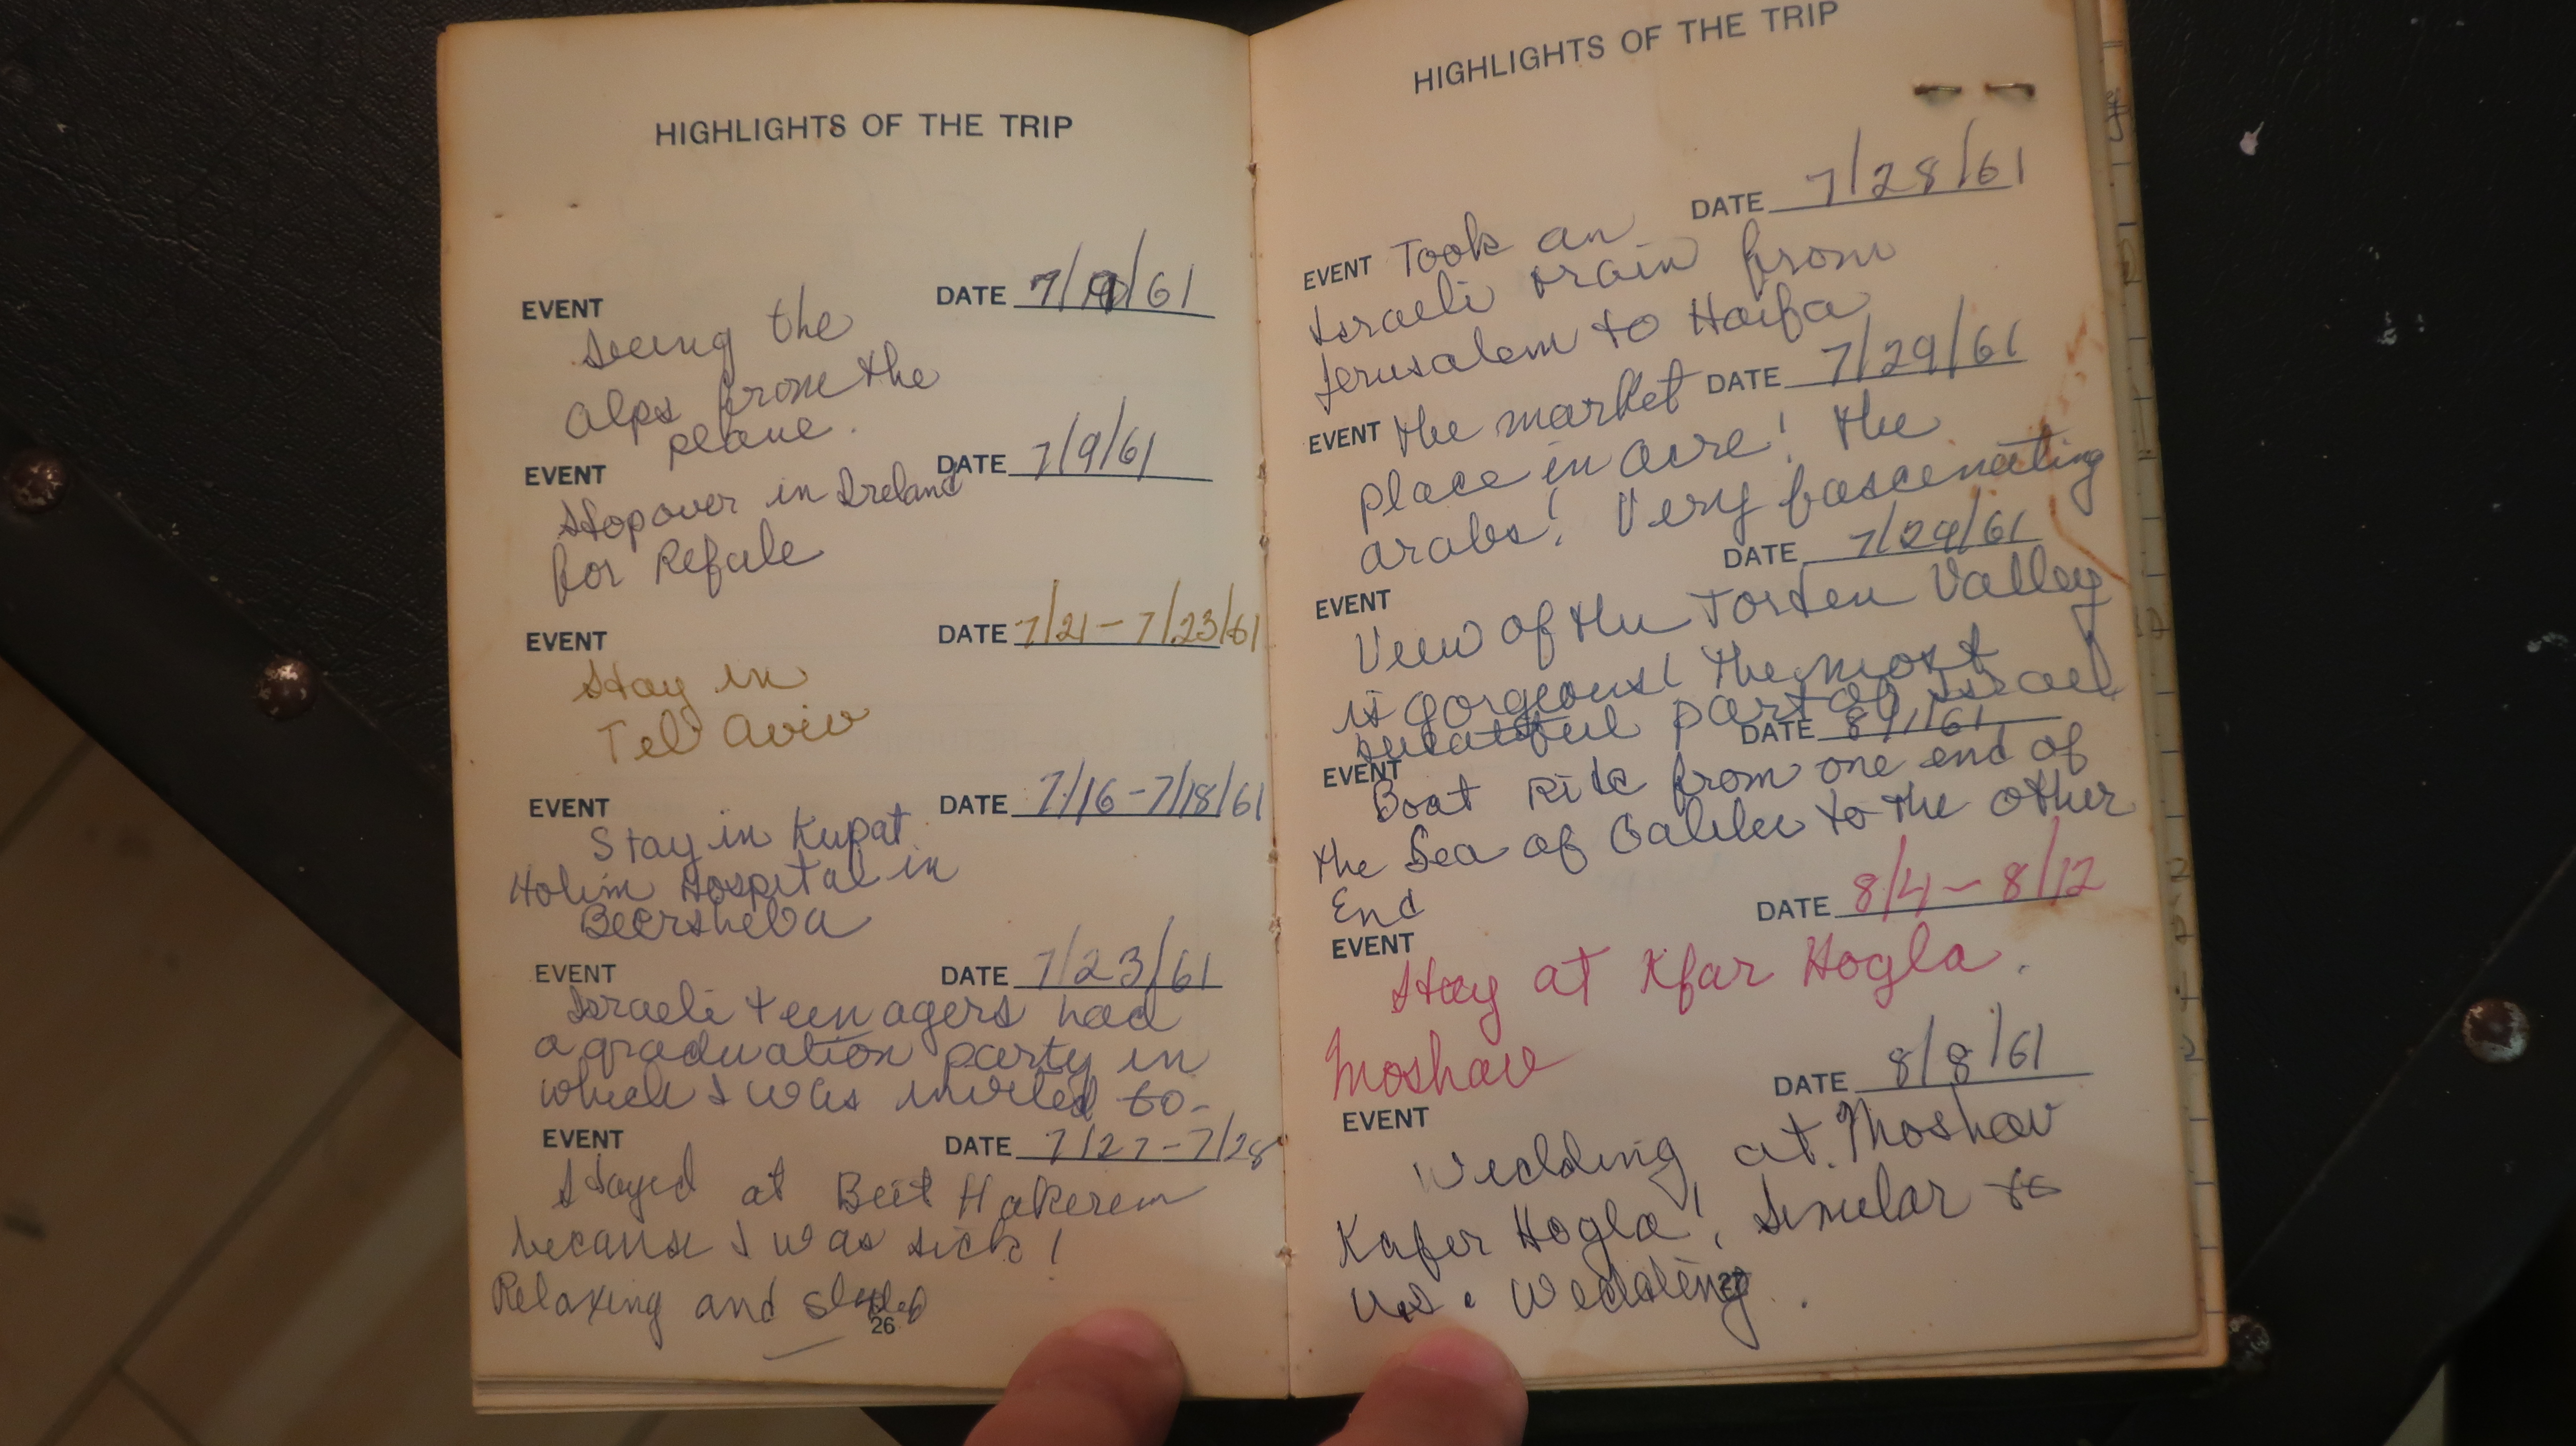 HIGHLIGHTS OF THE TRIP
EVENT DATE 7/9/61
Seeing the
Alps from the
plane.
EVENT DATE 7/9/61
Stopover in Ireland
for Refule
EVENT DATE 7/21 - 7/23/61
Stay in
Tel Aviv
EVENT DATE 7/16 - 7/18/61
Stay in Kupat
Holim Hospital in
Beersheba
EVENT DATE 7/23/61
Israeli teenagers had
a graduation party in
which I was invited to-
EVENT DATE 7/27 - 7/28
Stayed at Beit Hakerem
because I was sick!
Relaxing and
26
HIGHLIGHTS OF THE TRIP
DATE 7/28/61
EVENT Took an
Israeli train from
Jerusalem to Haifa
DATE 7/29/61
EVENT The market
place in Acre! The
arabs! Very fascenating
DATE 7/29/61
EVENT
View of the Jorden Valley
is gorgeous! The most
beautiful part of Israel
DATE 8/1/61
EVENT
Boat Ride from one end of
the Sea of Galilee to the other
End
DATE 8/4 - 8/12
EVENT
Stay at Kfar Hogla.
Moshav
DATE 8/8/61
EVENT
Wedding at Moshav
Kafer Hogla! Similar to
U.S. Wedding.
27